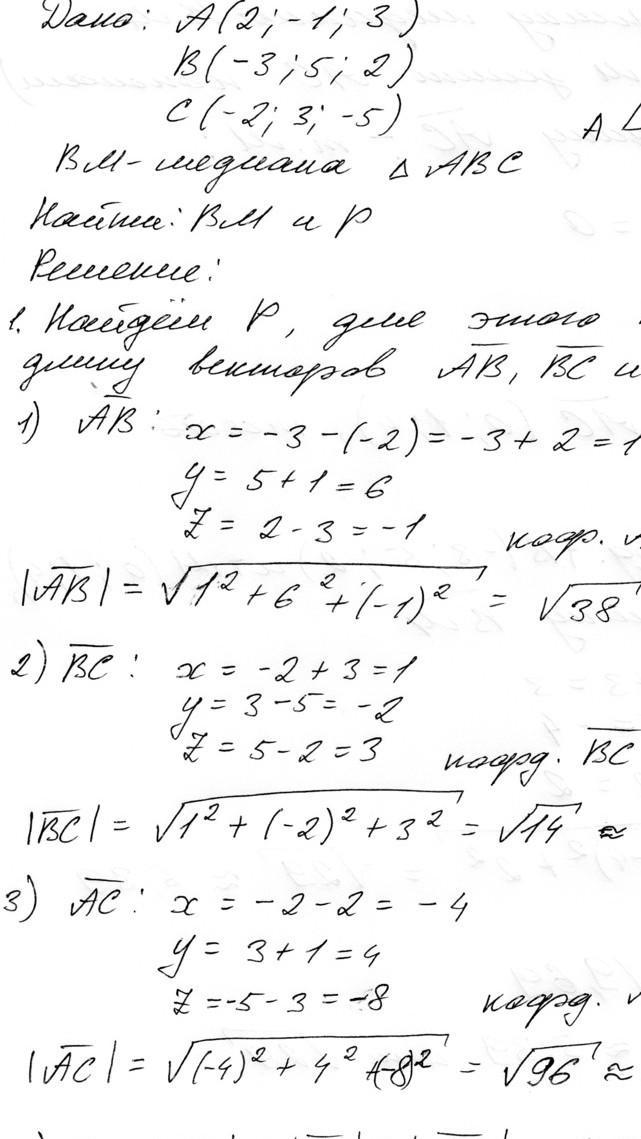 Дано: A(2; -1; 3)
B(-3; 5; 2)
C(-2; 3; -5)
A
BM-медиана △ ABC
Найти: BM и P
Решение:
1. Найдём P, для этого
длину векторов AB, BC и
1) AB: x = -3 - (-2) = -3 + 2 = 1
y = 5 + 1 = 6
z = 2 - 3 = -1
коор.
|AB| = √1² + 6² + (-1)² = √38
2) BC: x = -2 + 3 = 1
y = 3 - 5 = -2
z = 5 - 2 = 3
коорд. BC
|BC| = √1² + (-2)² + 3² = √14 ≈
3) AC: x = -2 - 2 = -4
y = 3 + 1 = 4
z = -5 - 3 = -8
коорд.
|AC| = √(-4)² + 4² + (-8)² = √96 ≈